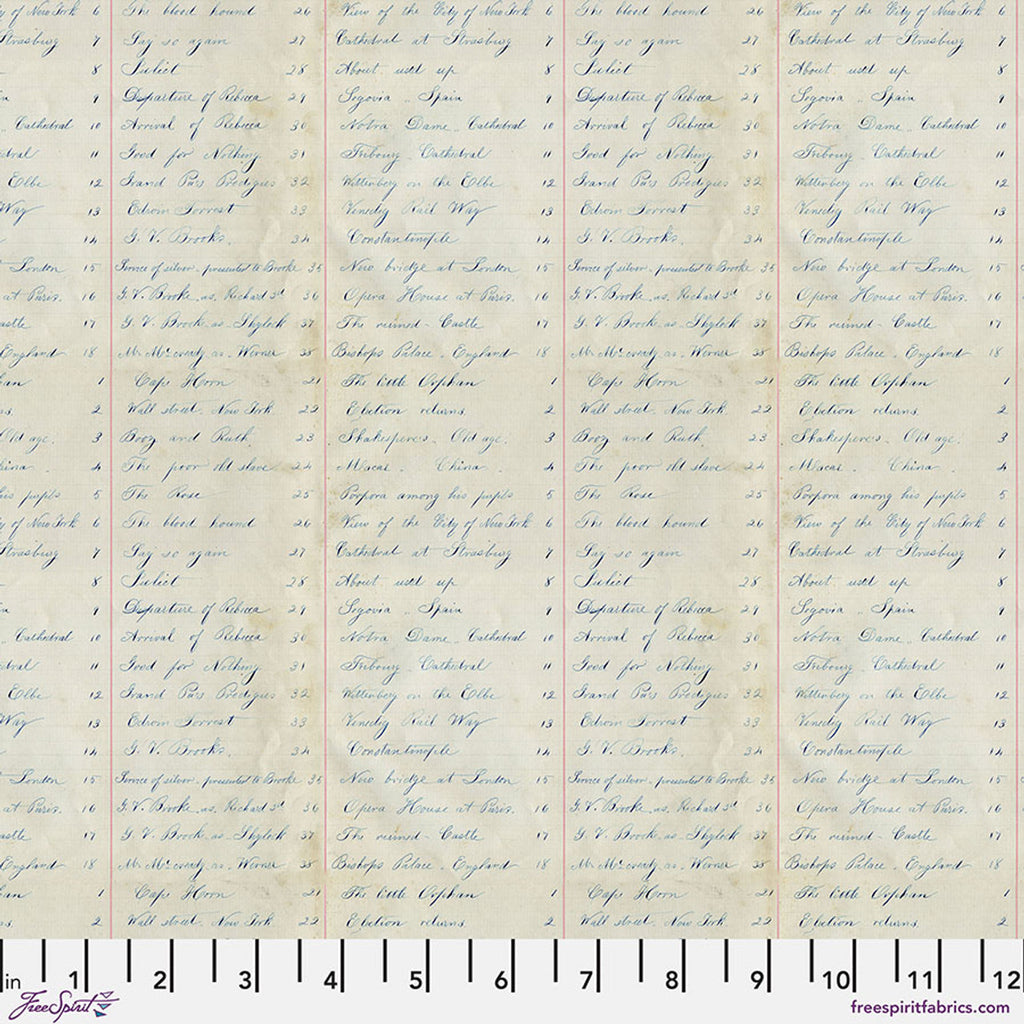 of New York 6 The blood hound 26 View of the City of New York 6 The blood hound 26 View of the City of New York 6
Strasburg 7 Say so again 27 Cathedral at Strasburg 7 Say so again 27 Cathedral at Strasburg 7
8 Juliet 28 About used up 8 Juliet 28 About used up 8
9 Departure of Rebecca 29 Segovia .. Spain 9 Departure of Rebecca 29 Segovia .. Spain 9
.. Cathedral 10 Arrival of Rebecca 30 Notra Dame .. Cathedral 10 Arrival of Rebecca 30 Notra Dame .. Cathedral 10
dral 11 Good for Nothing 31 Fribourg . Cathedral 11 Good for Nothing 31 Fribourg . Cathedral 11
Elbe 12 Grand Pa's Prodegies 32 Wittenberg on the Elbe 12 Grand Pa's Prodegies 32 Wittenberg on the Elbe 12
Way 13 Edwin Forrest 33 Venedig Rail Way 13 Edwin Forrest 33 Venedig Rail Way 13
14 G. V. Brooke. 34 Constantinople 14 G. V. Brooke. 34 Constantinople 14
London 15 Service of silver . presented to Brooke 35 New bridge at London 15 Service of silver . presented to Brooke 35 New bridge at London 15
at Paris. 16 G. V. Brooke . as . Richard 3d 36 Opera House at Paris. 16 G. V. Brooke . as . Richard 3d 36 Opera House at Paris. 16
astle 17 G. V. Brooke as . Shylock 37 The ruined - Castle 17 G. V. Brooke as . Shylock 37 The ruined - Castle 17
England 18 Mr McCready as . Werner 38 Bishops Palace . England 18 Mr McCready as . Werner 38 Bishops Palace . England 18
han 1 Cape Horn 21 The little Orphan 1 Cape Horn 21 The little Orphan 1
ns. 2 Wall street . New York 22 Election returns. 2 Wall street . New York 22 Election returns. 2
Old age. 3 Booz and Ruth. 23 Shakespere's . Old age. 3 Booz and Ruth. 23 Shakespere's . Old age. 3
hina . 4 The poor old slave 24 Macao . China . 4 The poor old slave 24 Macao . China . 4
his pupils 5 The Rose 25 Porpora among his pupils 5 The Rose 25 Porpora among his pupils 5
of New York 6 The blood hound 26 View of the City of New York 6 The blood hound 26 View of the City of New York 6
Strasburg 7 Say so again 27 Cathedral at Strasburg 7 Say so again 27 Cathedral at Strasburg 7
8 Juliet 28 About used up 8 Juliet 28 About used up 8
9 Departure of Rebecca 29 Segovia .. Spain 9 Departure of Rebecca 29 Segovia .. Spain 9
.. Cathedral 10 Arrival of Rebecca 30 Notra Dame .. Cathedral 10 Arrival of Rebecca 30 Notra Dame .. Cathedral 10
dral 11 Good for Nothing 31 Fribourg . Cathedral 11 Good for Nothing 31 Fribourg . Cathedral 11
Elbe 12 Grand Pa's Prodegies 32 Wittenberg on the Elbe 12 Grand Pa's Prodegies 32 Wittenberg on the Elbe 12
Way 13 Edwin Forrest 33 Venedig Rail Way 13 Edwin Forrest 33 Venedig Rail Way 13
14 G. V. Brooke. 34 Constantinople 14 G. V. Brooke. 34 Constantinople 14
London 15 Service of silver . presented to Brooke 35 New bridge at London 15 Service of silver . presented to Brooke 35 New bridge at London 15
at Paris. 16 G. V. Brooke . as . Richard 3d 36 Opera House at Paris. 16 G. V. Brooke . as . Richard 3d 36 Opera House at Paris. 16
astle 17 G. V. Brooke as . Shylock 37 The ruined - Castle 17 G. V. Brooke as . Shylock 37 The ruined - Castle 17
England 18 Mr McCready as . Werner 38 Bishops Palace . England 18 Mr McCready as . Werner 38 Bishops Palace . England 18
han 1 Cape Horn 21 The little Orphan 1 Cape Horn 21 The little Orphan 1
ns. 2 Wall street . New York 22 Election returns. 2 Wall street . New York 22 Election returns. 2
in 1 2 3 4 5 6 7 8 9 10 11 12
FreeSpirit
freespiritfabrics.com